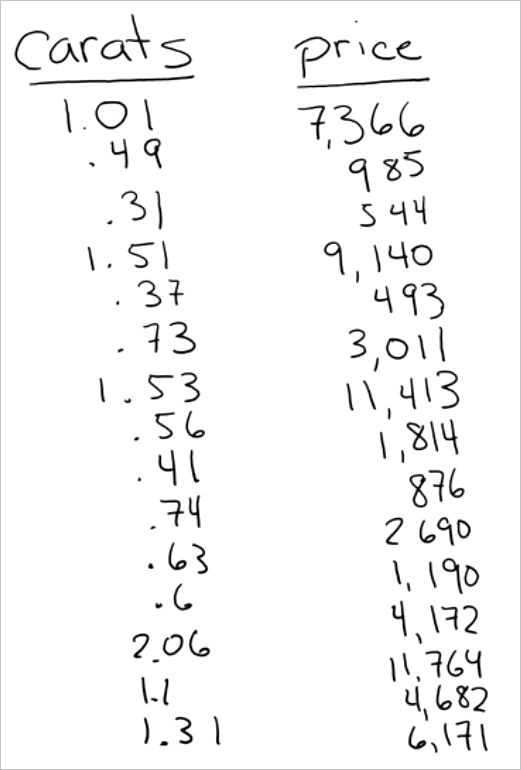 Carats price
1.01 7,366
.49 985
.31 544
1.51 9,140
.37 493
.73 3,011
1.53 11,413
.56 1,814
.41 876
.74 2 690
.63 1,190
.6 4,172
2.06 11.764
1.1 4,682
1.31 6,171